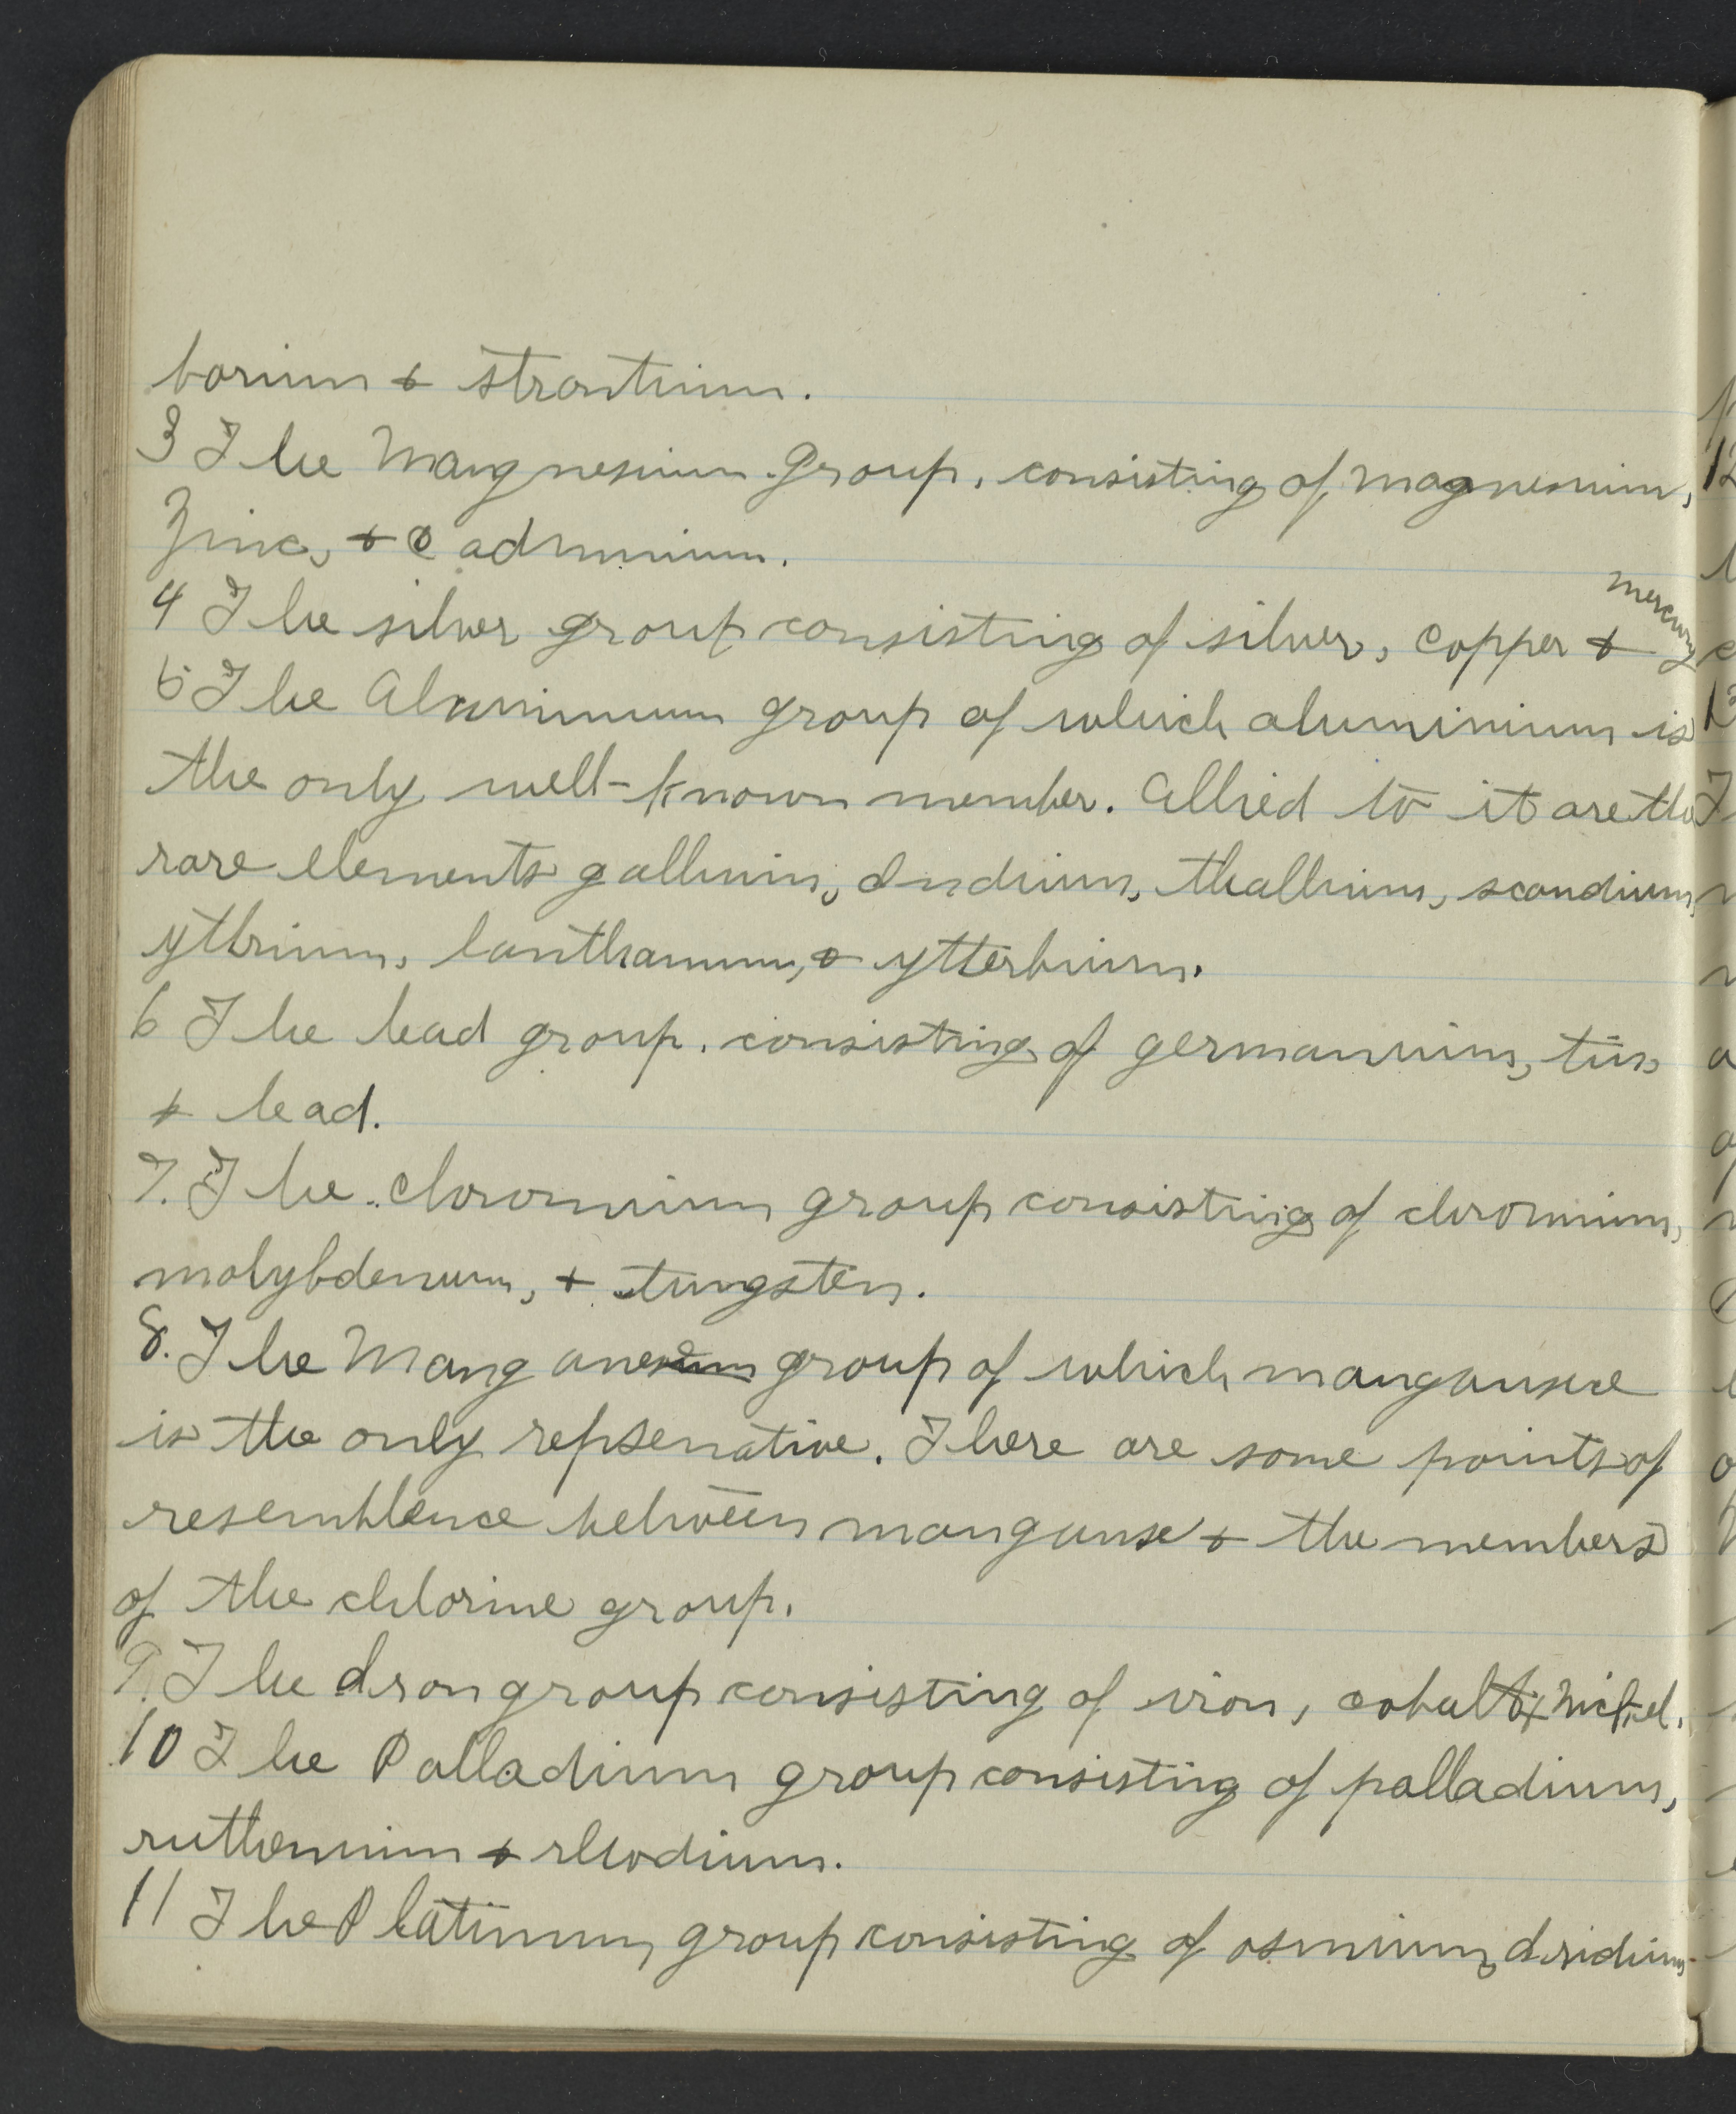 barium & strontium.
3 The Mangnesium Group, consisting of magnesium,
Zinc, & Cadmium.
4 The silver group consisting of silver, copper & mercury
5 The Aluminum group of which aluminium is
the only well-known member. Allied to it are the
rare elements gallium, Indium, thallium, scandium,
yttrium, lanthanum, & ytterbium.
6 The lead group, consisting of germanium, tin,
& lead.
7. The chromium group consisting of chromium,
molybdenum, & tungsten.
8. The Manganese group of which manganese
is the only repsenative. There are some points of
resemblence between manganse & the members
of the chlorine group.
9. The Iron group consisting of iron, cobalt & Nickel.
10 The Palladium group consisting of palladium,
ruthenium & rhodium.
11 The Platinum group consisting of osmium, Iridium